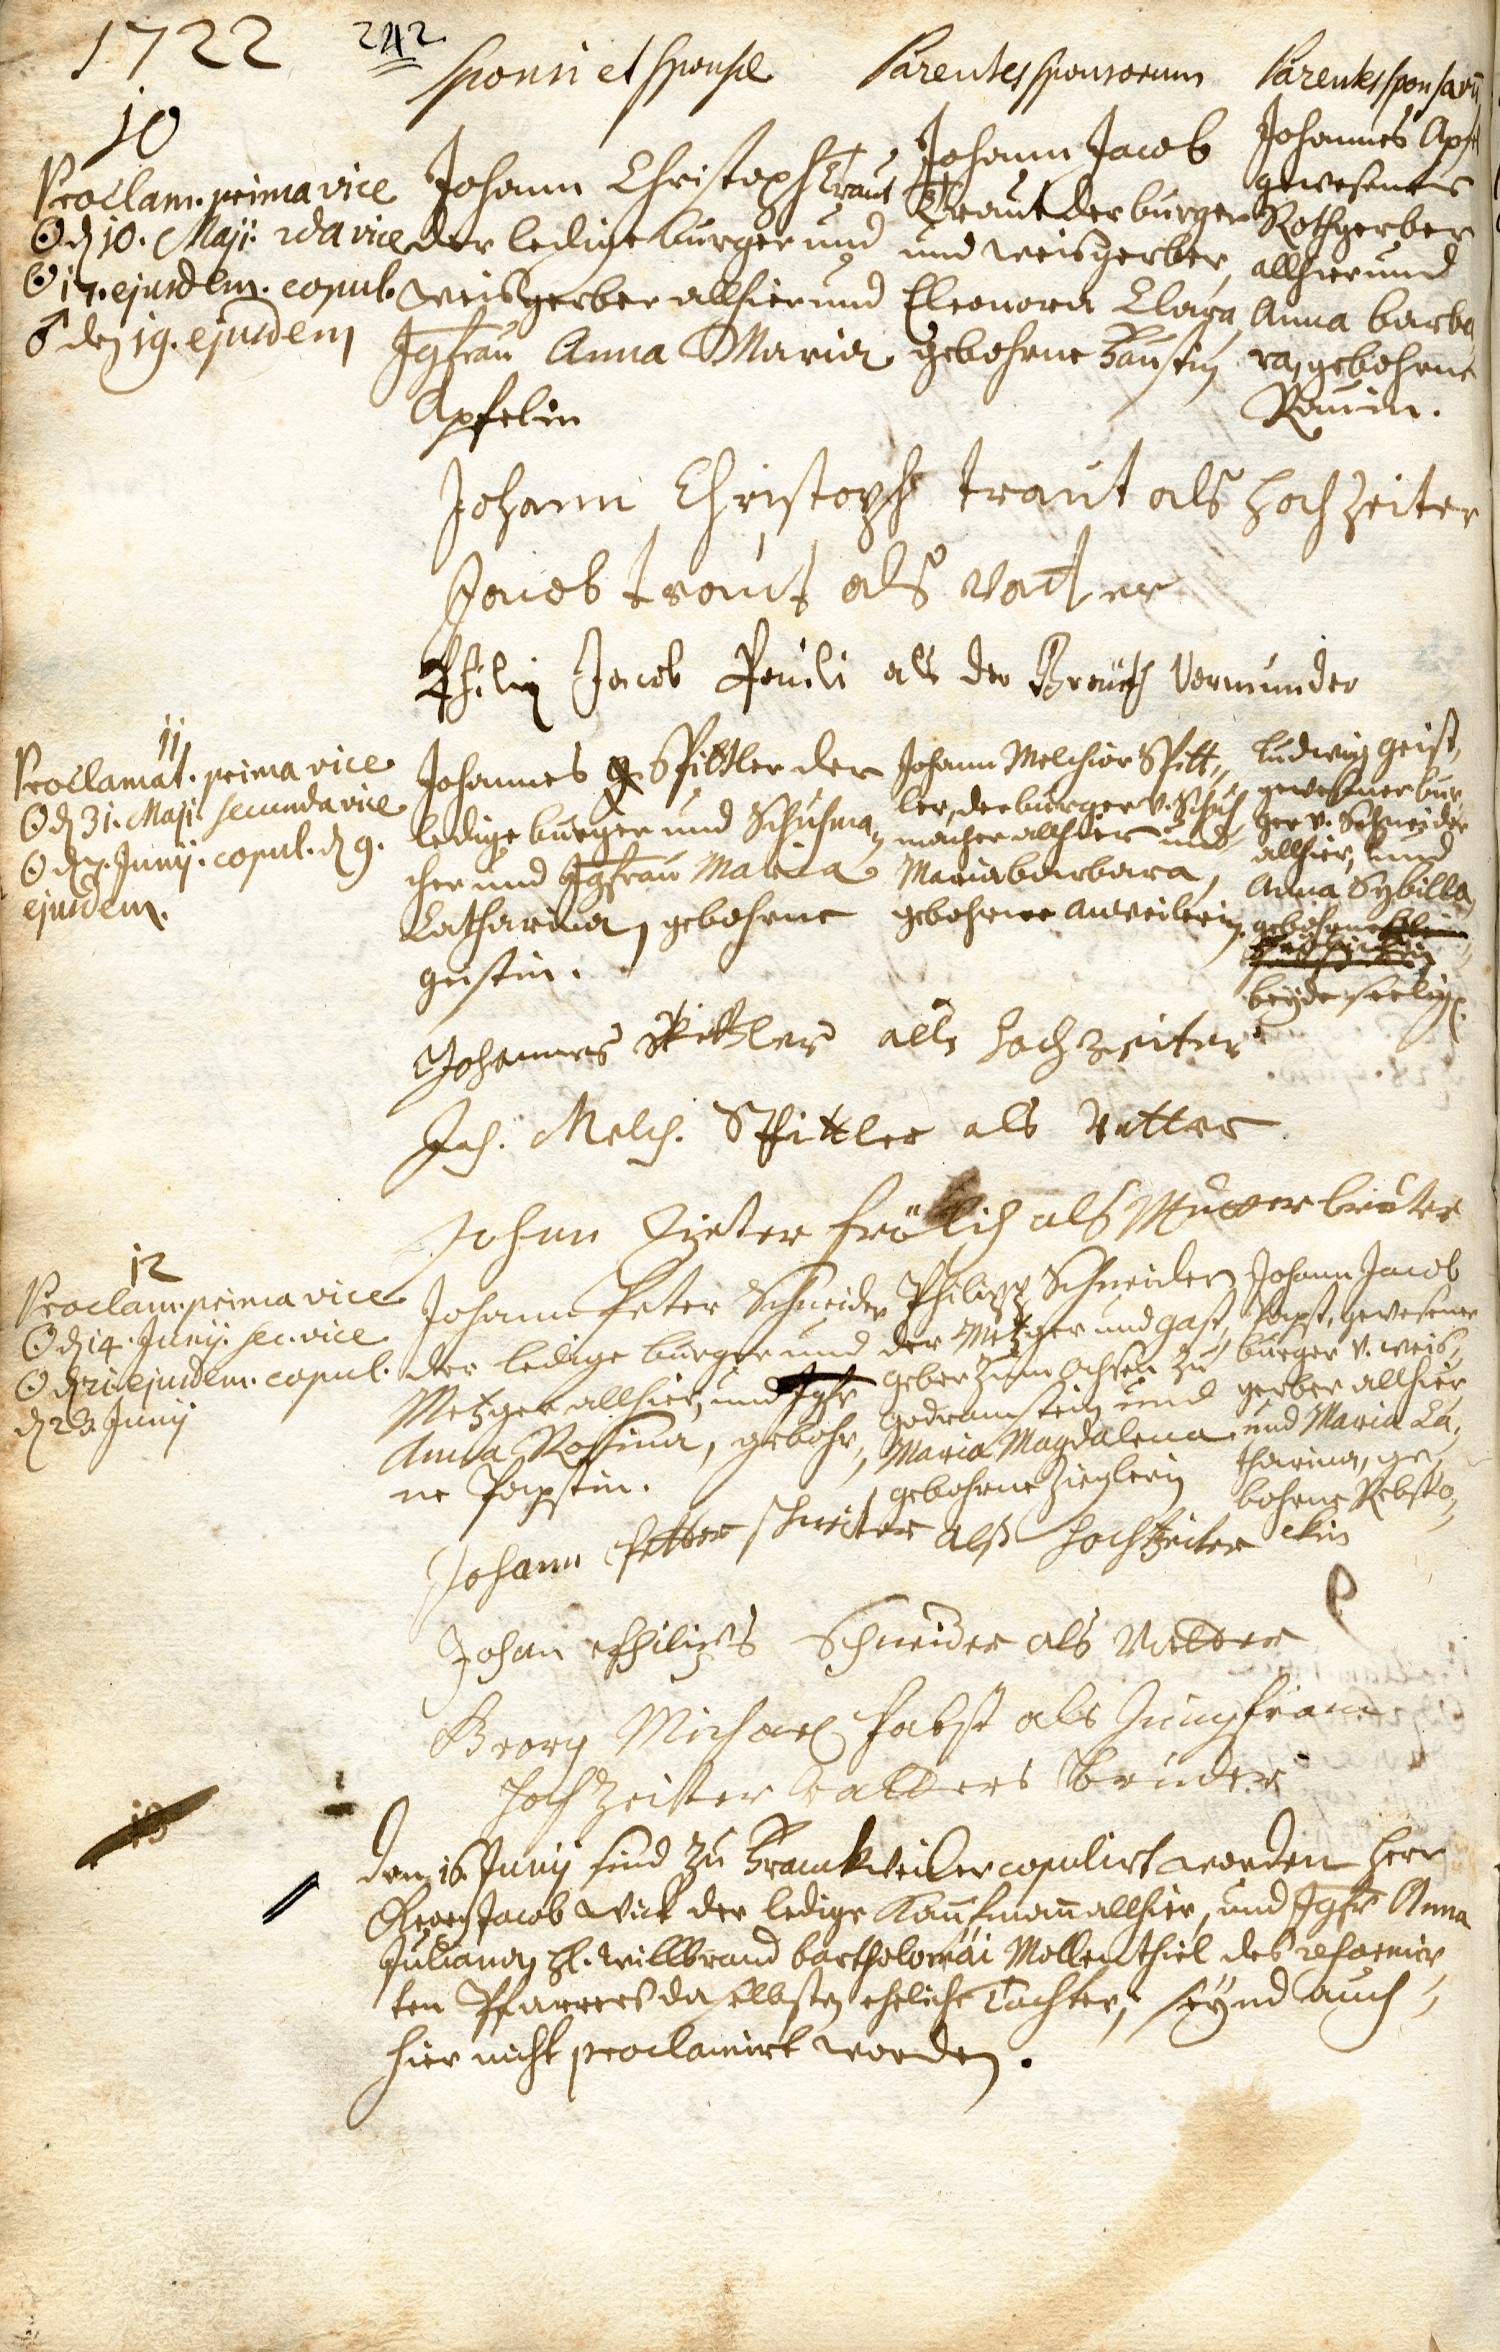 1722
242
Sponsi et Sponsæ
Parentes Sponsorum
Parentes Sponsarū
10
Proclam. prima vice
☉ dn 10. Maji. 2da vice
☉ 17. ejusdem. copul.
♂ den 19. ejusdem
Johann Christoph Traut
der ledige burger und
weisgerber allhier und
Jgfrau Anna Maria
Apfelin
Johann Jacob
Traut der burger
und weisgerber,
Eleonora Clara,
gebohrne
Johannes Apfel
gewesener
Rothgerber
allhier und
Anna Barba
ra, gebohrne
Johann Christoph traut als hochzeiter
Jacob traut als vatter
Philip Jacob Pauli als der Breuth Vormunder
11
Proclamat. prima vice
☉ dn 31. Maji secunda vice
☉ dn 7. Junij. copul. dn 9.
ejusdem.
Johannes Spittler der
ledige burger und Schuhma,,
cher und Jgfrau Maria
Catharina, gebohrne
geistin.
Johann Melchior Spitt,,
ler, der burger v. Schuh,,
macher allhier und
Maria barbara,
gebohrne Anweilerin.
Ludwig geist,
gewesener bur,,
ger v. Schneider
allhier, und
Anna Sybilla
gebohrne
beyde seelig.
Johannes Spittler alls hochzeiter
Joh. Melch. Spittler als Vatter
Johan Dieter Frölich als Mutter bruter
12
Proclam. prima vice
☉ dn 14. Junij. sec. vice
☉ dn 21 ejusdem. copul.
dn 23. Junij
Johann Peter Schneider
der ledige burger und
Metzger allhier, und Jgfr
Anna Rosina, gebohr,,
ne Papstin.
Philipp Schneider
der Metzger und gast,,
geber zum Ochsen zu
godramstein und
Maria Magdalena
gebohrne Zieglerin
Johann Jacob
Papst, gewesener
burger v. weis,,
gerber allhier
und Maria Ca,,
tharina, ge,,
bohrne Rebsto,,
ckin
Johann Petter schneiter alß hochzeiter
Johan Philips Schneider als Vatter
Georg Michael Pabst als Jungfrau
hochzeiter Vatters Bruder
13
den 16. Junij sind zu Franckweiler copulirt worden Herr
Georg Jacob Wick der ledige Kauffmann allhier, und Jgfr Anna
Juliana, H. Willbrand Bartholomäi Mollenthiel des reformir
ten Pfarrers daselbsten eheliche Tochter, seynd auch,,
hier nicht proclamirt worden.